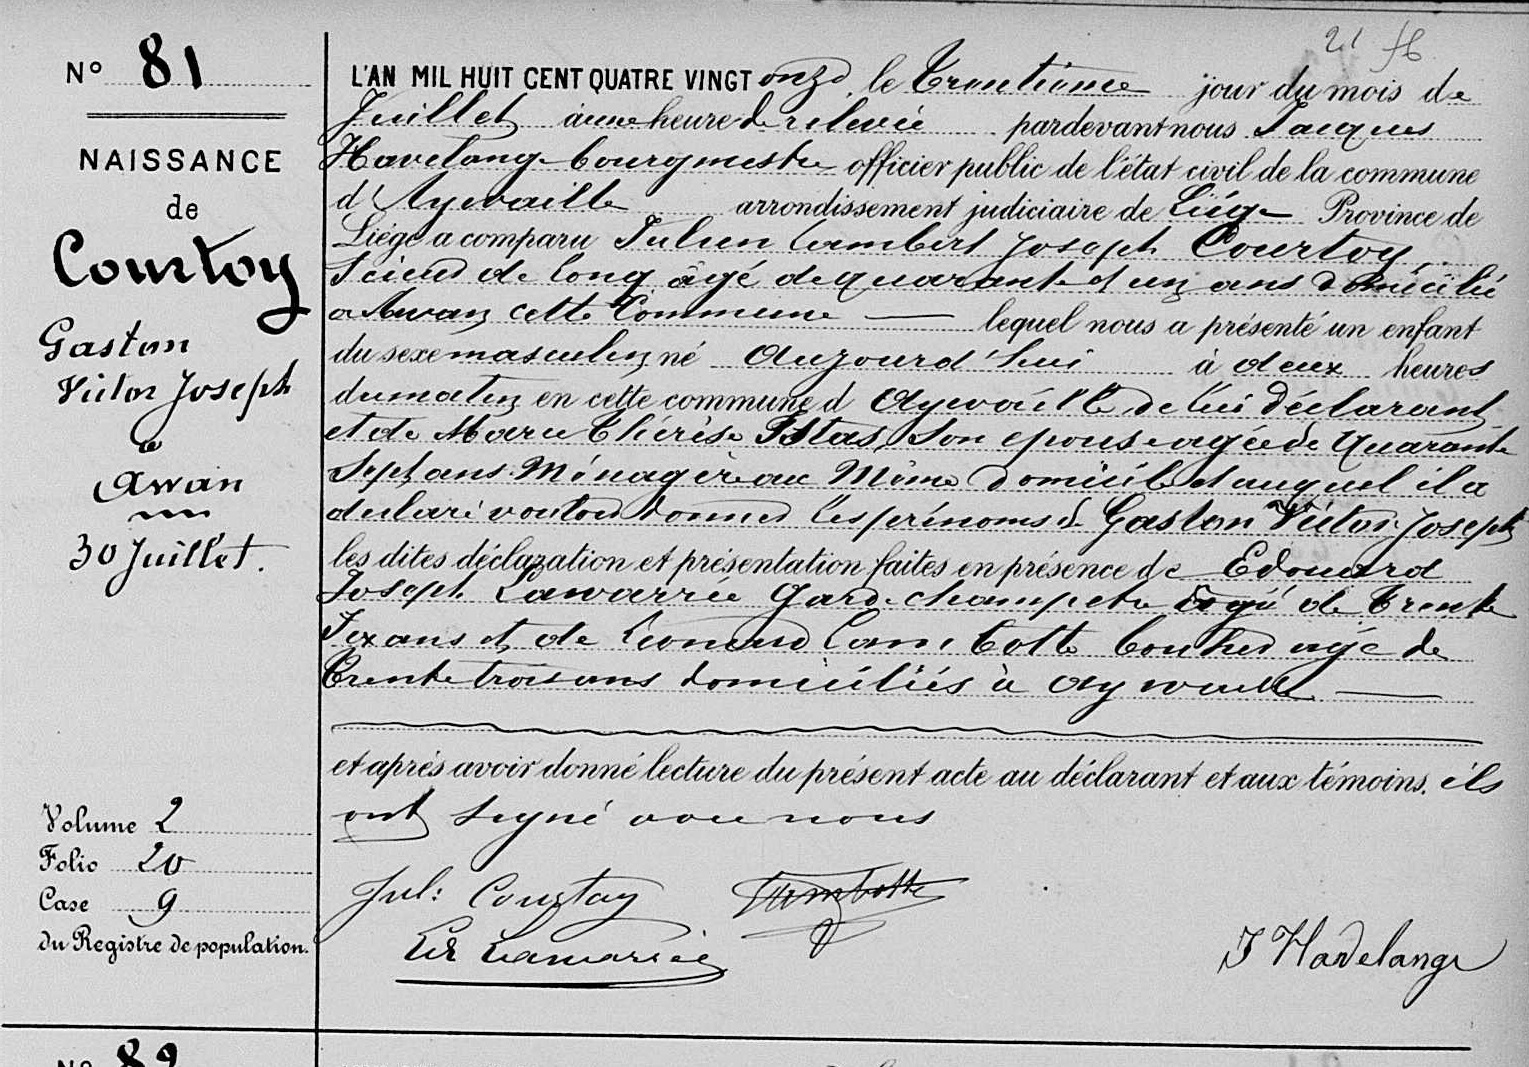 21
N° 81
NAISSANCE
de
Courtoy
Gaston
Victor Joseph
à
Awan
30 Juillet.
L'AN MIL HUIT CENT QUATRE VINGT onze, le Trentième jour du mois de
Juillet à une heure de relevée pardevant nous Jacques
Havelange bourgmestre officier public de l'état civil de la commune
d'Aywaille arrondissement judiciaire de Liége Province de
Liége a comparu Julien Lambert Joseph Courtoy,
Scieur de long âgé de quarante et un ans domicilié
à Awan cette Commune lequel nous a présenté un enfant
du sexe masculin né aujourd'hui à deux heures
du matin en cette commune d'Aywaille de lui déclarant
et de Marie Thérèse Istas, son épouse agée de quarante
Sept ans Ménagère au Même domicile et auquel il a
déclaré vouloir donner les prénoms de Gaston Victor Joseph
les dites déclaration et présentation faites en présence de Edouard
Joseph Lawarrée Garde champetre âgé de Trente
Six ans et de Léonard Lambotte boucher agé de
Trente trois ans domiciliés à Aywaille
et aprés avoir donné lecture du présent acte au déclarant et aux témoins, ils
ont signé avec nous
Jul: Courtoy Lambotte
Ed Lawarrée
J Havelange
Volume 2
Folio 20
Case 9
du Registre de population.
N° 82